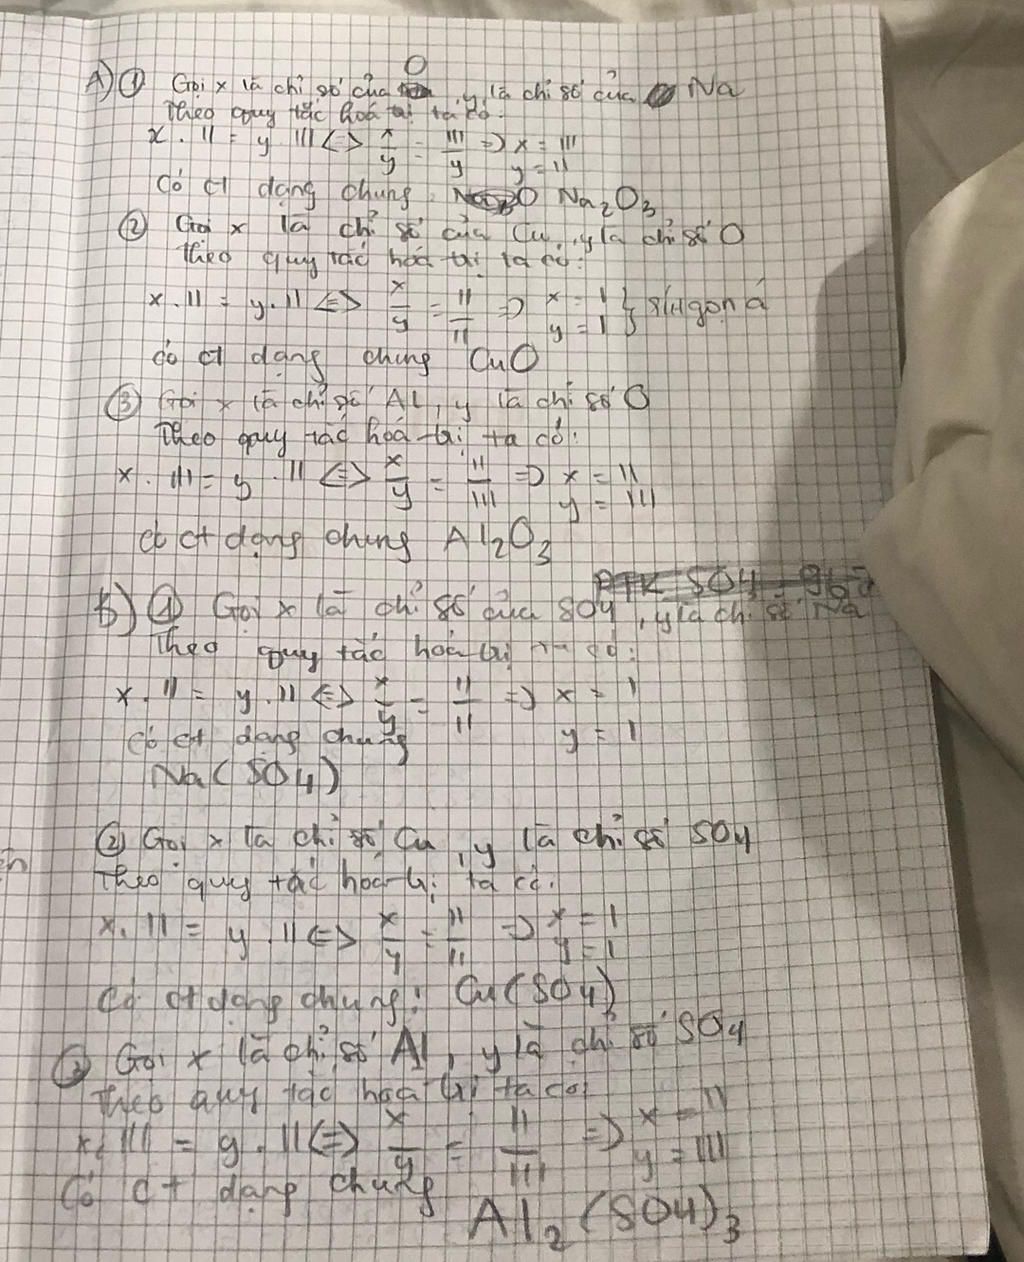 O
A) ① Gọi x là chỉ số của , y là chỉ số của Na
Theo quy tắc hoá trị ta có:
x . II = y III <=> x/y = III/y => x = III
y = II
Có ct dạng chung Na2O3
② Gọi x là chỉ số của Cu, y là chỉ số O
Theo quy tắc hoá trị ta có:
x . II = y . II <=> x/y = II/II => x = 1
y = 1
có ct dạng chung CuO
③ Gọi x là chỉ số Al, y là chỉ số O
Theo quy tắc hoá trị ta có:
x . III = y . II <=> x/y = II/III => x = II
y = III
có ct dạng chung Al2O3
PTK SO4 = 96
B) ① Gọi x là chỉ số của SO4, y là chỉ số Na
Theo quy tắc hoá trị ta có:
x . II = y . II <=> x/y = II/II => x = 1
y = 1
Có ct dạng chung
Na(SO4)
② Gọi x là chỉ số Cu, y là chỉ số SO4
Theo quy tắc hoá trị ta có:
x . II = y . II <=> x/y = II/II => x = 1
y = 1
Có ct dạng chung: Cu(SO4)
③ Gọi x là chỉ số Al, y là chỉ số SO4
Theo quy tắc hoá trị ta có:
x . III = y . II <=> x/y = II/III => x = II
y = III
Có ct dạng chung
Al2(SO4)3